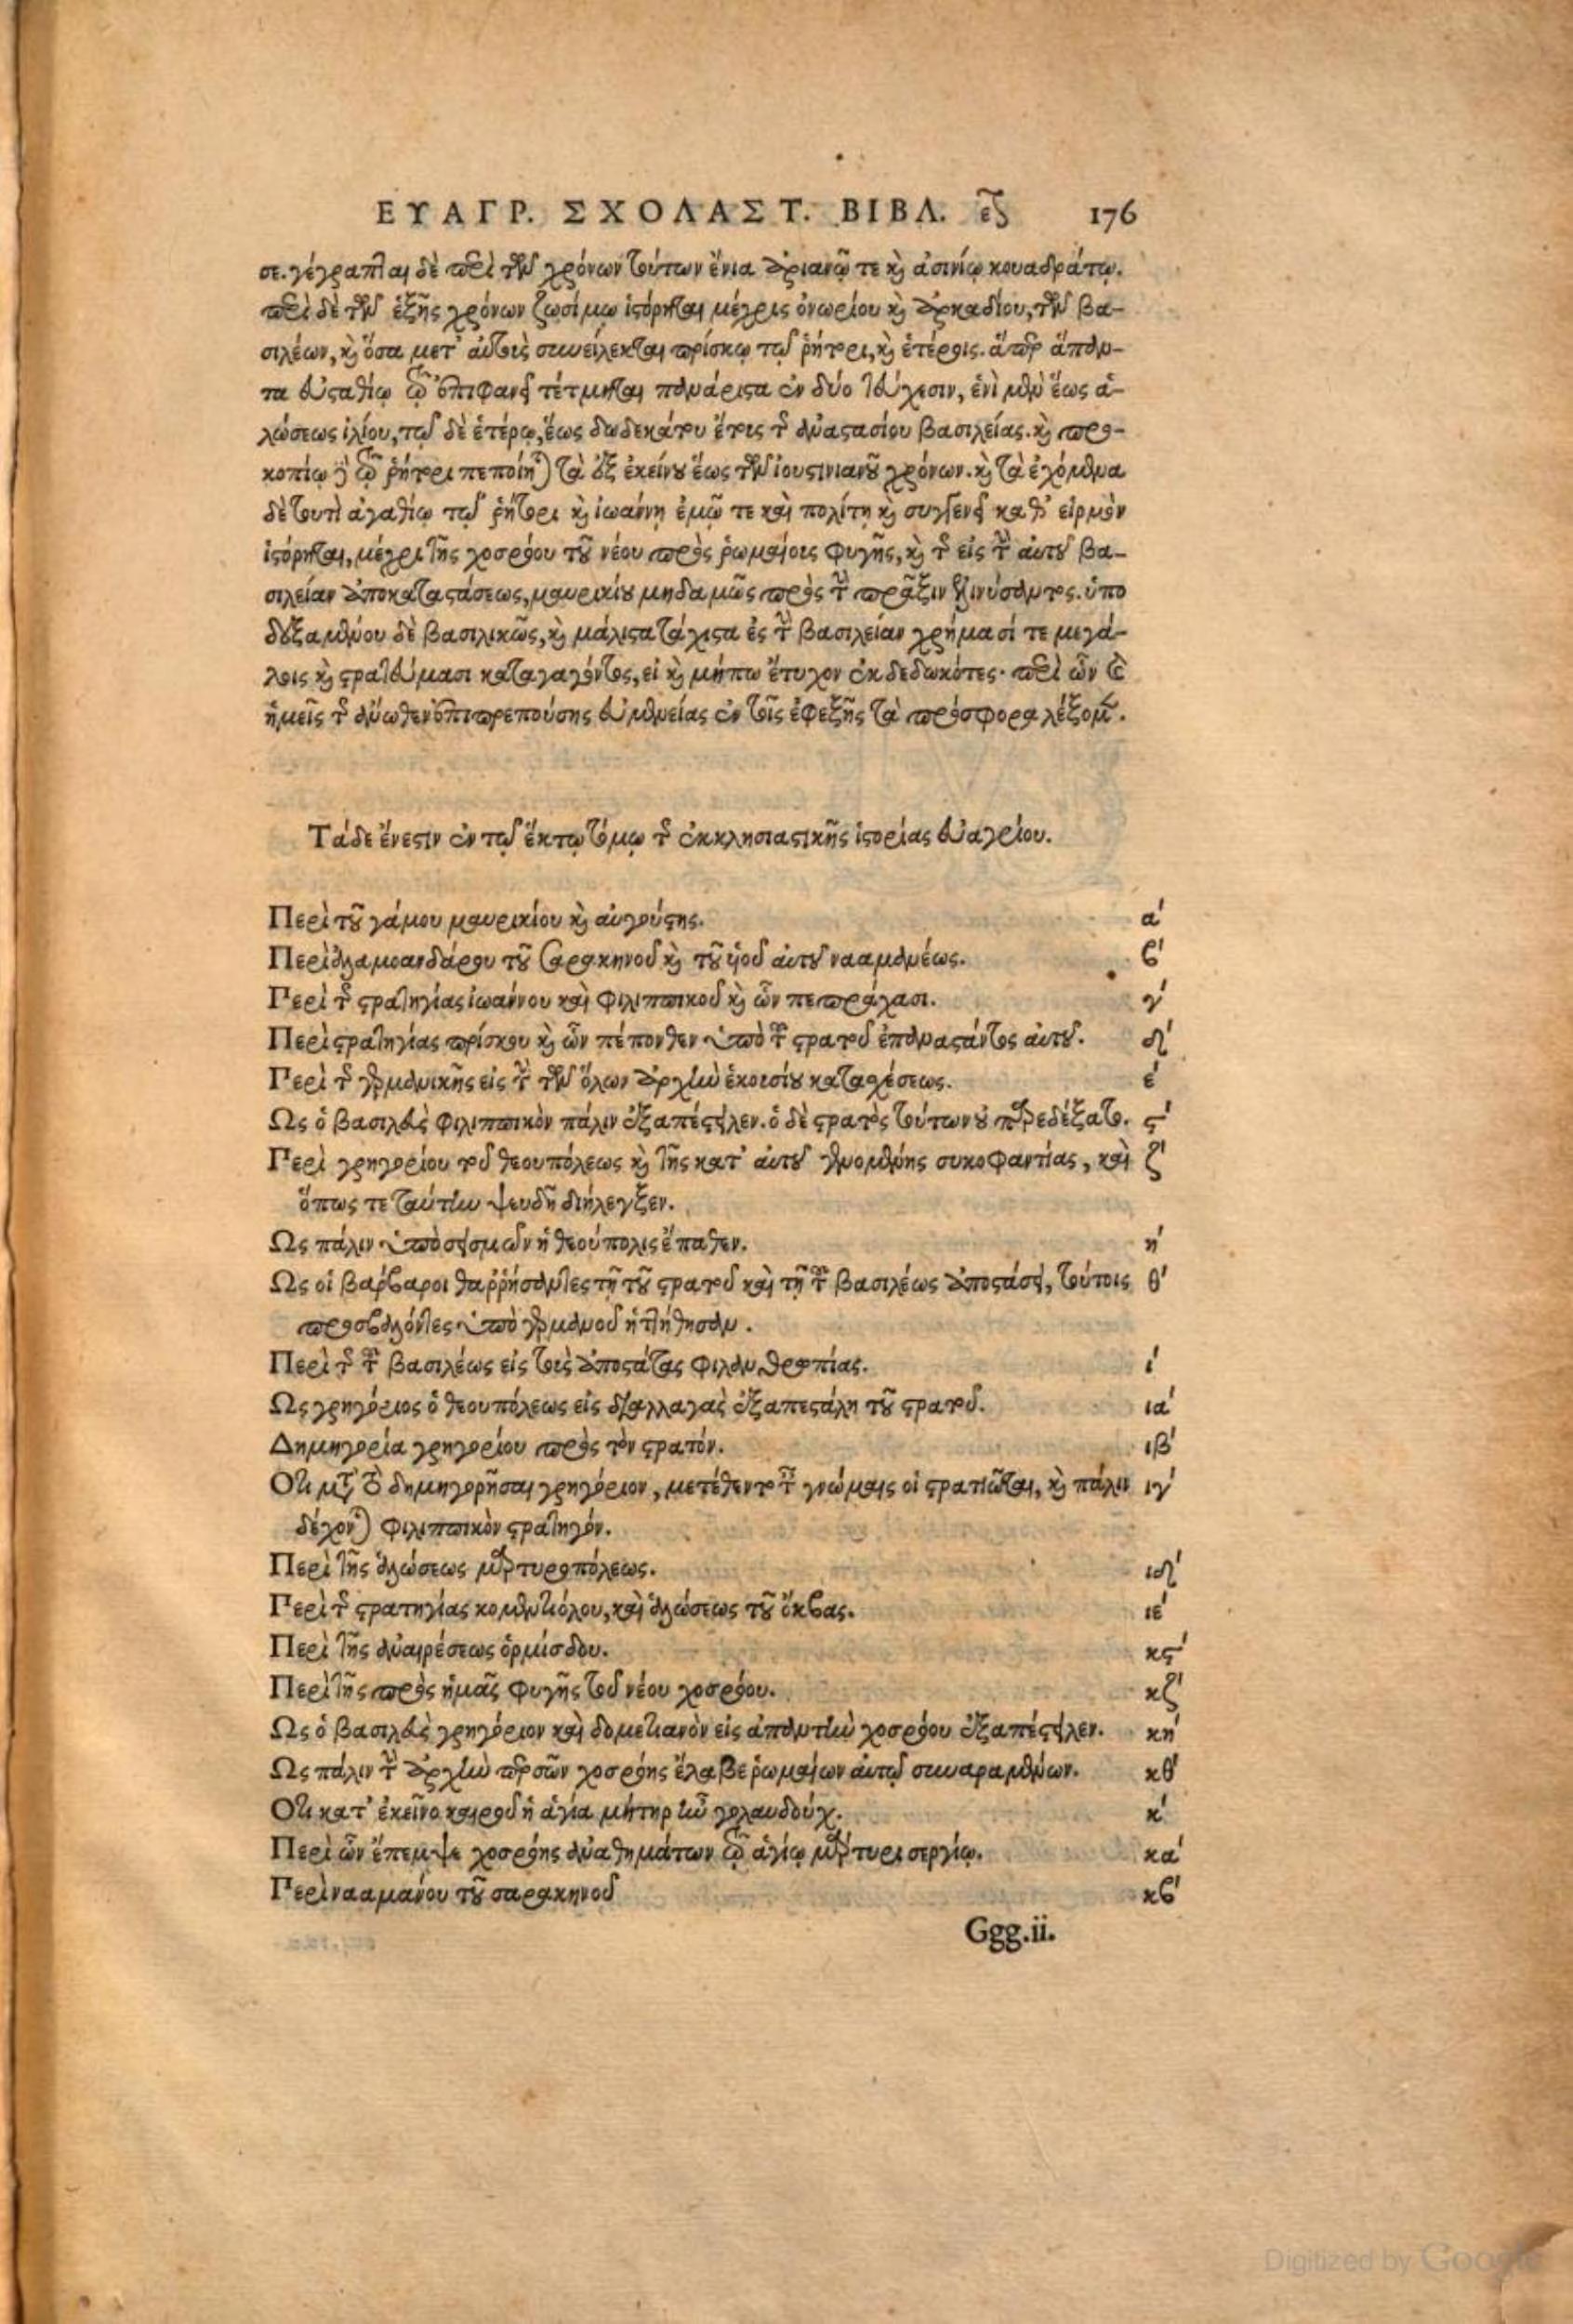 ΕΥΑΓΡ. ΣΧΟΛΑΣΤ. ΒΙΒΛ. 176
σε. γέγραπται δὲ περὶ τῶν χρόνων τούτων ἔνια ἀριανῷ τε καὶ ἀσινίῳ κουαδράτῳ.
περὶ δὲ τῶν ἑξῆς χρόνων ζωσίμῳ ἱστόρηται μέχρις ὀνωρίου καὶ ἀρκαδίου, τῶν βα-
σιλέων, καὶ ὅσα μετ' αὐτοὺς συνείλεκται πρίσκῳ τῷ ῥήτορι, καὶ ἑτέροις. ἅπερ ἅπαν-
τα εὐσταθίῳ τῷ ἐπιφανεῖ τέτμηται πανάριστα ἐν δύο τεύχεσιν, ἑνὶ μὲν ἕως ἁ-
λώσεως ἰλίου, τῷ δὲ ἑτέρῳ, ἕως δωδεκάτου ἔτους τῆς ἀναστασίου βασιλείας. καὶ προ-
κοπίῳ δὲ τῷ ῥήτορι πεποίηται τὰ ἐξ ἐκείνου ἕως τῶν ἰουστινιανοῦ χρόνων. καὶ τὰ ἐχόμενα
δὲ τουτὶ ἀγαθίῳ τῷ ῥήτορι καὶ ἰωάννῃ ἐμῷ τε καὶ πολίτῃ καὶ συγγενεῖ καθ' εἱρμὸν
ἱστόρηται, μέχρι τῆς χοσρόου τοῦ νέου πρὸς ῥωμαίους φυγῆς, καὶ τῆς εἰς τὴν αὐτοῦ βα-
σιλείαν ἀποκαταστάσεως, μαυρικίου μηδαμῶς πρὸς τὴν πρᾶξιν ἐλινύσαντος. ὑπο
δεξαμένου δὲ βασιλικῶς, καὶ μάλιστα τάχιστα ἐς τὴν βασιλείαν χρήμασί τε μεγά-
λοις καὶ στρατεύμασι καταγαγόντος, εἰ καὶ μήπω ἔτυχον ἐκδεδωκότες. περὶ ὧν καὶ
ἡμεῖς τῆς ἄνωθεν ἐπιπρεπούσης εὐμενείας ἐν τοῖς ἐφεξῆς τὰ πρόσφορα λέξομεν.
Τάδε ἔνεστιν ἐν τῷ ἕκτῳ τόμῳ τῆς ἐκκλησιαστικῆς ἱστορίας εὐαγρίου.
Περὶ τοῦ γάμου μαυρικίου καὶ αὐγούστης. α'
Περὶ ἀλαμουνδάρου τοῦ σαρακηνοῦ καὶ τοῦ υἱοῦ αὐτοῦ νααμανέως. β'
Περὶ τῆς στρατηγίας ἰωάννου καὶ φιλιππικοῦ καὶ ὧν πεπράχασι. γ'
Περὶ στρατηγίας πρίσκου καὶ ὧν πέπονθεν ὑπὸ τοῦ στρατοῦ ἐπαναστάντος αὐτοῦ. δ'
Περὶ τῆς γερμανικῆς εἰς τὴν τῶν ὅλων ἀρχὴν ἑκουσίου κατασχέσεως. ε'
Ως ὁ βασιλεὺς φιλιππικὸν πάλιν ἐξαπέστειλεν. ὁ δὲ στρατὸς τούτων οὐ παρεδέξατο. ϛ'
Περὶ γρηγορίου τοῦ θεουπόλεως καὶ τῆς κατ' αὐτοῦ γενομένης συκοφαντίας, καὶ ζ'
ὅπως τε ταύτην ψευδῆ διήλεγξεν.
Ως πάλιν ὑπὸ σεισμῶν ἡ θεούπολις ἔπαθεν. η'
Ως οἱ βάρβαροι θαῤῥήσαντες τῇ τοῦ στρατοῦ καὶ τῇ τοῦ βασιλέως ἀποστάσει, τούτοις θ'
προσβαλόντες ὑπὸ γερμανοῦ ἡττήθησαν.
Περὶ τῆς τοῦ βασιλέως εἰς τοὺς ἀποστάτας φιλανθρωπίας. ι'
Ως γρηγόριος ὁ θεουπόλεως εἰς διαλλαγὰς ἐξαπεστάλη τοῦ στρατοῦ. ια'
Δημηγορία γρηγορίου πρὸς τὸν στρατόν. ιβ'
Οτι μετὰ τὸ δημηγορῆσαι γρηγόριον, μετέθεντο τὰς γνώμαις οἱ στρατιῶται, καὶ πάλιν ιγ'
δέχονται φιλιππικὸν στρατηγόν.
Περὶ τῆς ἁλώσεως μαρτυροπόλεως. ιδ'
Περὶ τῆς στρατηγίας κομεντιόλου, καὶ ἁλώσεως τοῦ ὄκβας. ιε'
Περὶ τῆς ἀναιρέσεως ὁρμίσδου. κϛ'
Περὶ τῆς πρὸς ἡμᾶς φυγῆς τοῦ νέου χοσρόου. κζ'
Ως ὁ βασιλεὺς γρηγόριον καὶ δομετιανὸν εἰς ἀπαντὴν χοσρόου ἐξαπέστειλεν. κη'
Ως πάλιν τὴν ἀρχὴν περσῶν χοσρόης ἔλαβε ῥωμαίων αὐτῷ συναραμένων. κθ'
Οτι κατ' ἐκεῖνο καιροῦ ἡ ἁγία μήτηρ ἦν γολανδούχ. κ'
Περὶ ὧν ἔπεμψε χοσρόης ἀναθημάτων τῷ ἁγίῳ μάρτυρι σεργίῳ. κα'
Περὶ νααμάνου τοῦ σαρακηνοῦ κβ'
Ggg.ii.
Digitized by Google